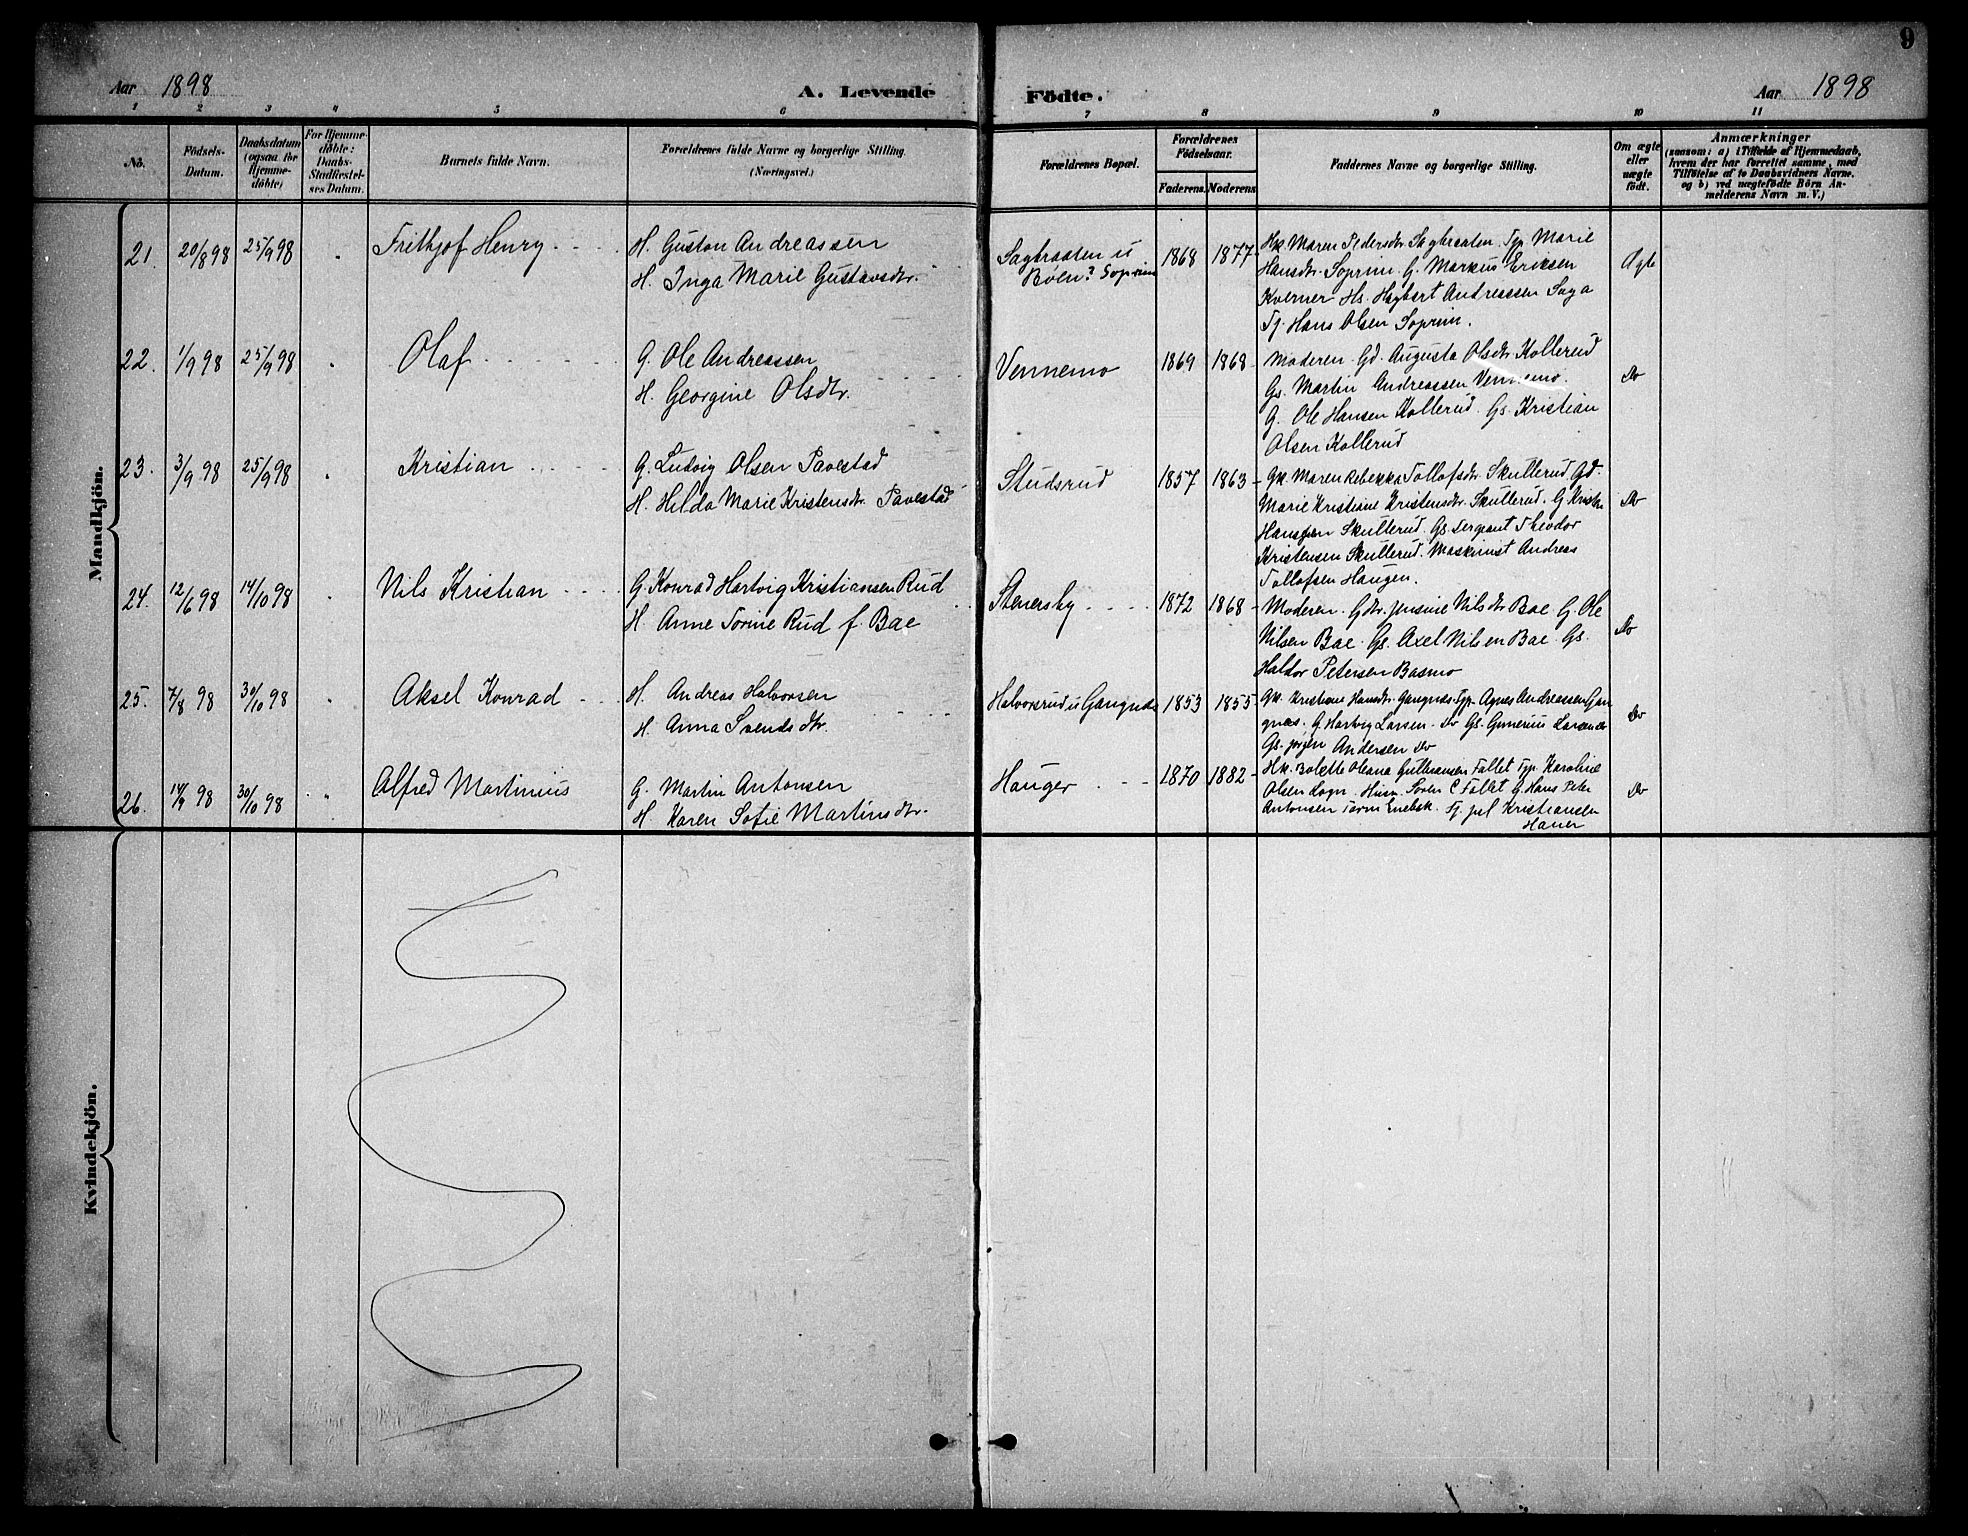 9
Aar 1898
A. Levende Födte.
Aar 1898
1 2 3 4 5 6 7 8 9 10 11
No.
Födsels-
Datum.
Daabsdatum
(ogsaa for
Hjemme-
döbte)
For Hjemme-
döbte:
Daabs-
Stadfæstel-
ses Datum.
Barnets fulde Navn.
Forældrenes fulde Navne og borgerlige Stilling.
(Næringsvei.)
Forældrenes Bopæl.
Forældrenes
Födselsaar.
Faderens. Moderens
Faddernes Navne og borgerlige Stilling.
Om ægte
eller
uægte
födt.
Anmærkninger
(saasom: a) i Tilfælde af Hjemmedaab,
hvem der har forrettet samme, med
Tilföielse af to Daabsvidners Navne.
og b) ved uægtefödte Börn An-
melderens Navn m. V.)
Mandkjön.
21. 20/8 98 25/9 98 " Frithjof Henry
H. Gustav Andreassen
H. Inga Marie Gustavsdtr.
Sagbraaten u
Böen? Soprim
1868 1877
Hk. Maren Pedersdtr. Sagbraaten. Tp. Marie
Hansdtr. Soprim. G. Markus Eriksen
Kverner Hs. Hagbart Andreassen Saga
Tj. Hans Olsen Soprim.
Ægte
22. 1/9 98 25/9 98 " Olaf
G. Ole Andreassen
H. Georgine Olsdtr.
Vennemo
1869 1868
Moderen. Gd. Augusta Olsdtr Kollerud
Gs. Martin Andreassen Vennemo.
G. Ole Hansen Kollerud. Gs. Kristian
Olsen Kollerud
Do
23. 3/9 98 25/9 98 " Kristian
G. Ludvig Olsen Pavestad
H. Hilda Marie Kristensdtr. Pavestad
Studsrud
1857 1863
Gk. Maren Rebekka Tollofsdtr. Skullerud Gd.
Marie Kristiane Kristensdtr. Skullerud. G
Hanssen Skullerud. Gs. Sergeant Theodor
Kristensen Skullerud. Maskinist Andreas
Tollofsen Haugen.
Do
24. 12/6 98 14/10 98 " Nils Kristian
G. Konrad Hartvig Kristiansen Rud
H. Anne Torine Rud f. Bae
Stenersby
1872 1868
Moderen. Gdtr. Jensine Nilsdtr Bae G. Ole
Nilsen Bae. Gs. Axel Nilsen Bae. Gs.
Haldor Petersen Basmo
Do
25. 7/8 98 30/10 98 " Aksel Konrad
H. Andreas Halvorsen
H. Anna Svendsdtr.
Halvorsrud u Gangnæs
1853 1855
Gk. Kristiane Hansdtr. Gangnæs. Tp. Agnes Andreassen Gan
gnæs. G. Hartvig Larsen. Do Gs. Gunerius Larsen do
Gs. Jörgen Andersen Do
Do
26. 14/9 98 30/10 98 " Alfred Martinius
G. Martin Antonsen
H. Karen Sofie Martinsdtr.
Hauger
1870 1882
Hk. Bolette Oleana Gulbransen Fallet Tp. Karoline
Olsen Sogn. Husm. Soren C Fallet G. Hans Peter
Antonsen Enebak. Tj. Kristiansen
Hauer
Do
Kvindekjön.